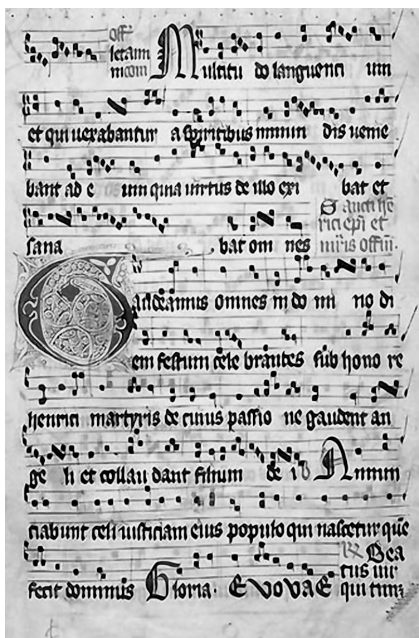 off
letaim
m com
Multitu do languenti um
et qui vexabantur a spiritibus inmun dis venie
bant ad e um quia virtus de illo exi bat et
sana bat om nes
Sancti he
rici epi et
mris offm.
Gaudeamus omnes in do mi no di
em festum cele brantes sub hono re
henrici martyris de cuius passio ne gaudent an
ge li et collau dant filium de i Annun
ciabunt celi iusticiam eius populo qui nascetur que
fecit dominus Gloria. EVOVAE
Bea
tus vir
qui tim